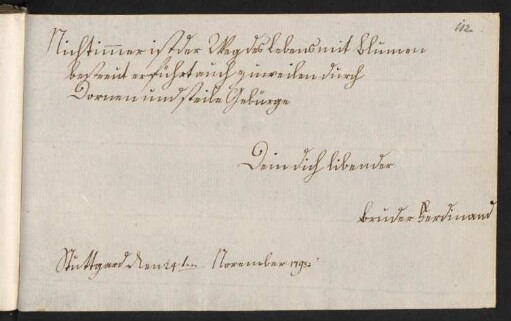 112
Nicht immer ist der Weg des Lebens mit Blumen
bestreut er führt auch zuweilen durch
Dornen und steile Gebürge
Dein dich libender
Bruder Ferdinand
Stuttgard den 24ten November